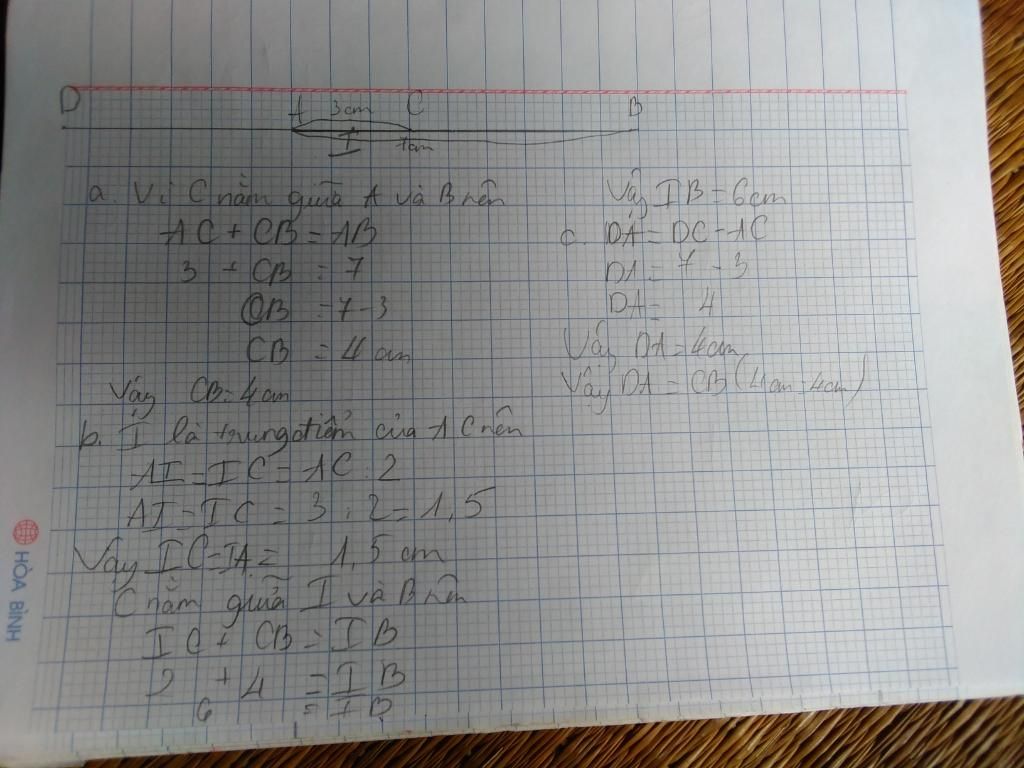 D A 3cm C B
I 7cm
a. Vì C nằm giữa A và B nên
AC + CB = AB
3 + CB = 7
CB = 7-3
CB = 4 cm
Vậy CB = 4cm
b. I là trung điểm của AC nên
AI = IC = AC : 2
AI = IC = 3 : 2 = 1,5
Vậy IC = IA = 1,5 cm
C nằm giữa I và B nên
IC + CB = IB
2 + 4 = IB
6 = IB
Vậy IB = 6cm
c. DA = DC - AC
DA = 7 - 3
DA = 4
Vậy DA = 4cm
Vậy DA = CB (4cm = 4cm)
HÒA BÌNH